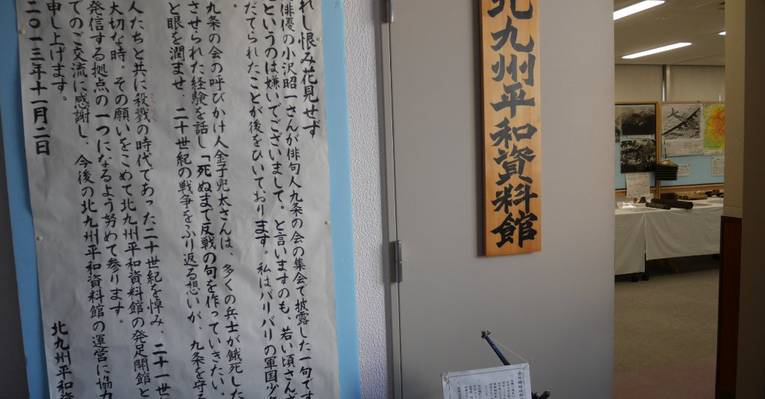 北九州平和資料館
れし恨み花見せず
俳優の小沢昭一さんが俳句人九条の会の集会で披露した一句です
というのは嫌いでございまして。と言いますのも、若い頃さんざ
だてられたことが後をひいております。私はバリバリの軍国少
九条の会の呼びかけ人金子兜太さんは、多くの兵士が餓死した
させられた経験を話し「死ぬまで反戦の句を作っていきたい。
と眼を潤ませ、二十世紀の戦争をふり返る想いが、九条を守る
人たちと共に殺戮の時代であった二十世紀を悼み、二十一世
大切な時、その願いをこめて北九州平和資料館の発足開館と
発信する拠点の一つになるよう努めて参ります。
てのご交流に感謝し、今後の北九州平和資料館の運営に協力
申し上げます。
二〇一三年十一月二日
北九州平和資